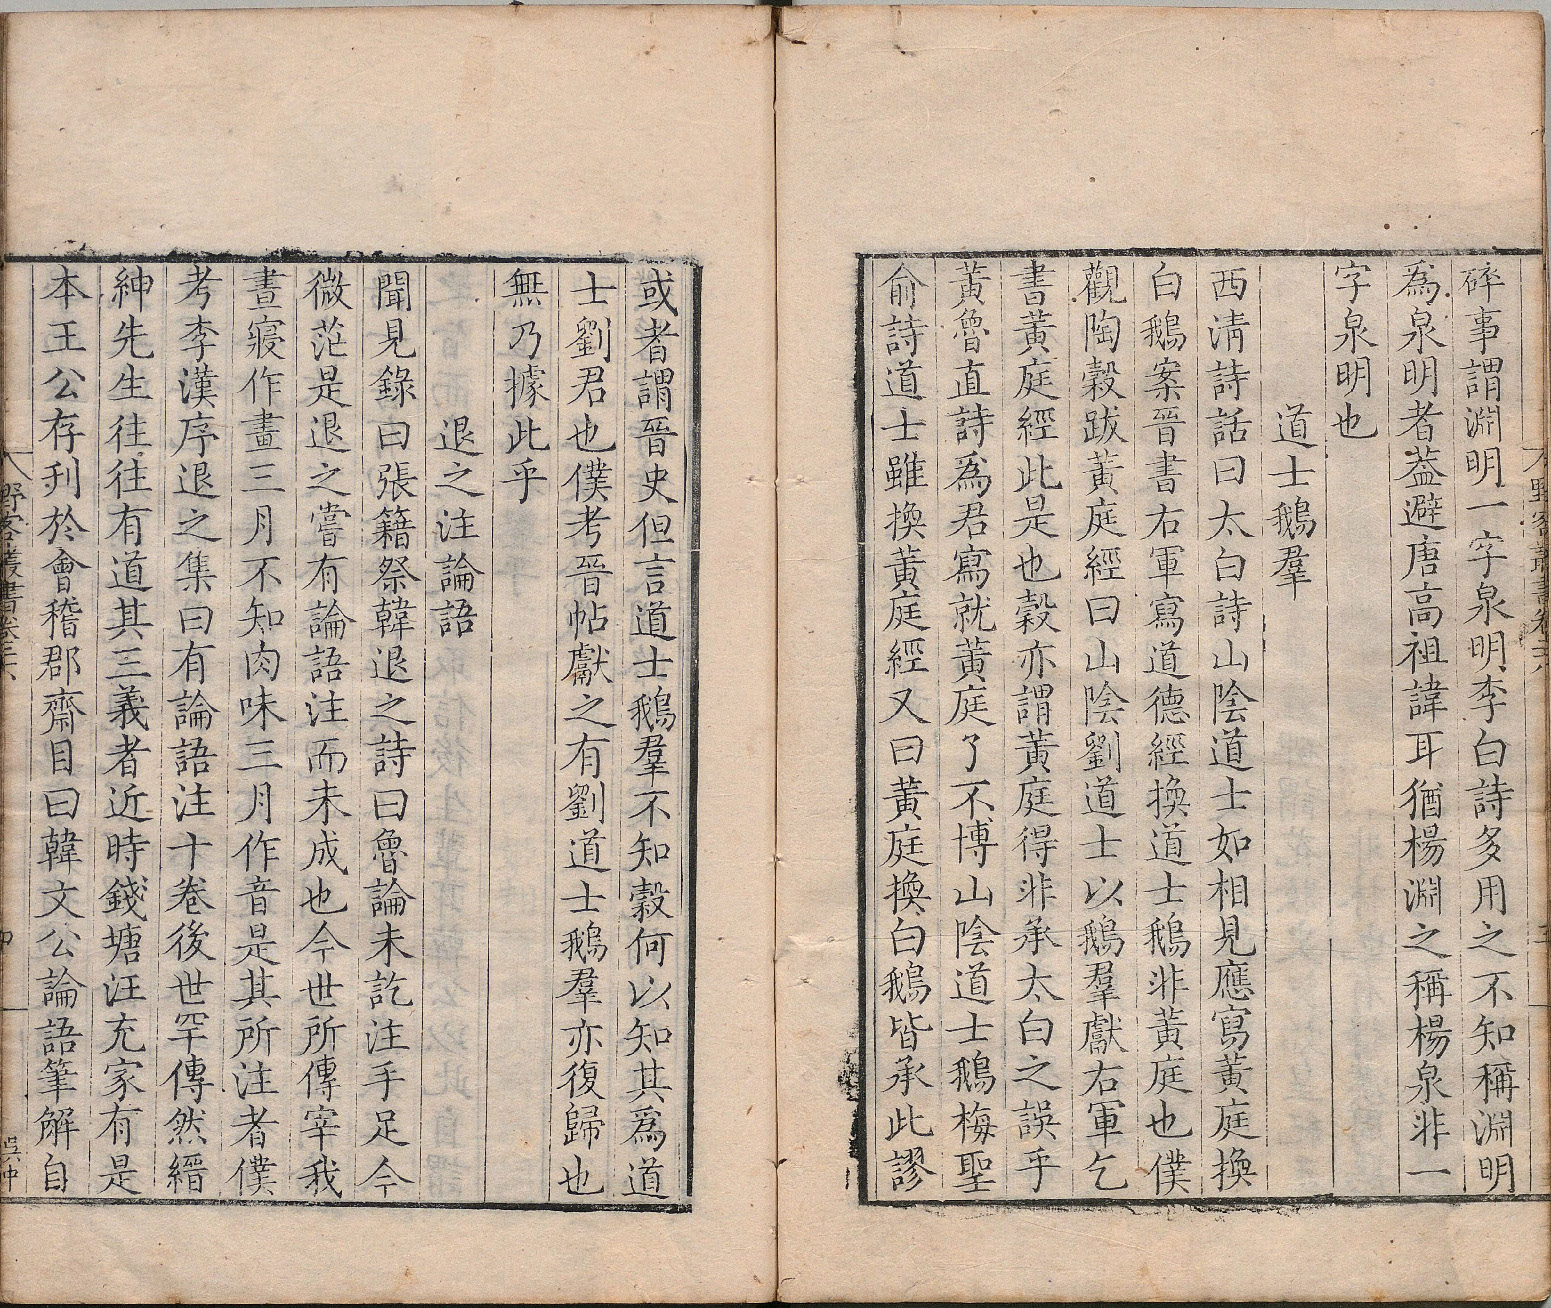 碎事謂淵明一字泉明李白詩多用之不知稱淵明
爲泉明者葢避唐高祖諱耳猶楊淵之稱楊泉非一
字泉明也
道士鵝羣
西淸詩話曰太白詩山陰道士如相見應寫黃庭換
白鵝案晉書右軍寫道德經換道士鵝非黃庭也僕
觀陶穀跋黃庭經曰山陰劉道士以鵝羣獻右軍乞
書黃庭經此是也穀亦謂黃庭得非承太白之誤乎
黃魯直詩爲君寫就黃庭了不博山陰道士鵝梅聖
俞詩道士雖換黃庭經又曰黃庭換白鵝皆承此謬
或者謂晉史但言道士鵝羣不知穀何以知其爲道
士劉君也僕考晉帖獻之有劉道士鵝羣亦復歸也
無乃據此乎
退之注論語
聞見錄曰張籍祭韓退之詩曰魯論未訖注手足今
微茫是退之嘗有論語注而未成也今世所傳宰我
晝寢作畫三月不知肉味三月作音是其所注者僕
考李漢序退之集曰有論語注十卷後世罕傳然縉
紳先生往往有道其三義者近時錢塘汪充家有是
本王公存刋於會稽郡齋目曰韓文公論語筆解自
野客叢書卷
吳仲